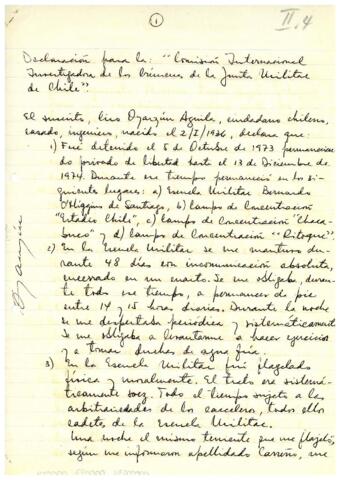 1
II.4
Declaración para la: "Comisión Internacional
Investigadora de los Crímenes de la Junta Militar
de Chile".
El suscrito, Ciro Oyarzún Aguila, ciudadano chileno,
casado, ingeniero, nacido el 2/I/1926, declara que:
1) Fué detenido el 5 de Octubre de 1973 permaneciendo
privado de libertad hasta el 13 de Diciembre de
1974. Durante ese tiempo permanecí en los si-
guiente lugares: a) Escuela Militar Bernardo
O'Higgins de Santiago, b) Campo de Concentración
"Estadio Chile", c) Campo de Concentración "Chaca-
buco" y d) Campo de Concentración "Ritoque".
2) En la Escuela Militar se me mantuvo du-
rante 48 días con incomunicación absoluta,
encerrado en un cuarto. Se me obligaba, duran-
te todo ese tiempo, a permanecer de pie
entre 14 y 15 horas diarias. Durante la noche
se me despertaba periodica y sistemáticamente
Se me obligaba a levantarme a hacer ejercicios
y a tomar duchas de agua fría.
3) En la Escuela Militar fuí flagelado
física y moralmente. El trato era sistemá-
ticamente soez. Todo el tiempo sujeto a las
arbitrariedades de los carceleros, todos ellos
cadetes de la Escuela Militar.
Una noche el mismo teniente que me flageló,
según me informaron apellidado Carreño, me
Oyarzún